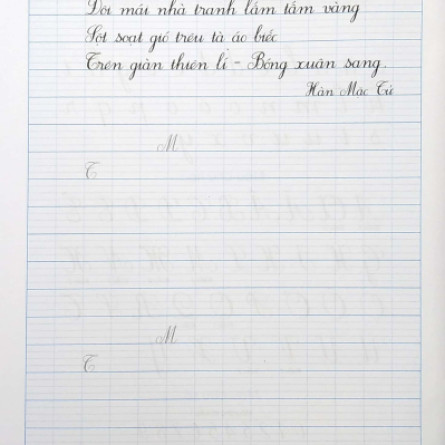 Đôi mái nhà tranh lấm tấm vàng
Sột soạt gió trêu tà áo biếc
Trên giàn thiên lí - Bóng xuân sang.
Hàn Mặc Tử
M
T
M
T